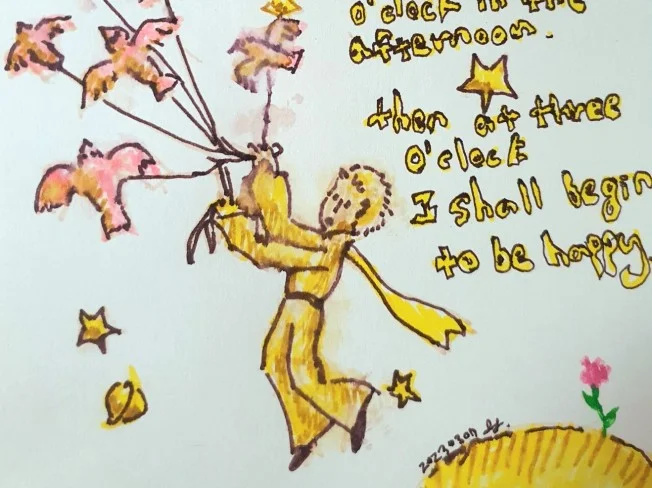 o'clock in the
afternoon.
then at three
o'clock
I shall begin
to be happy.